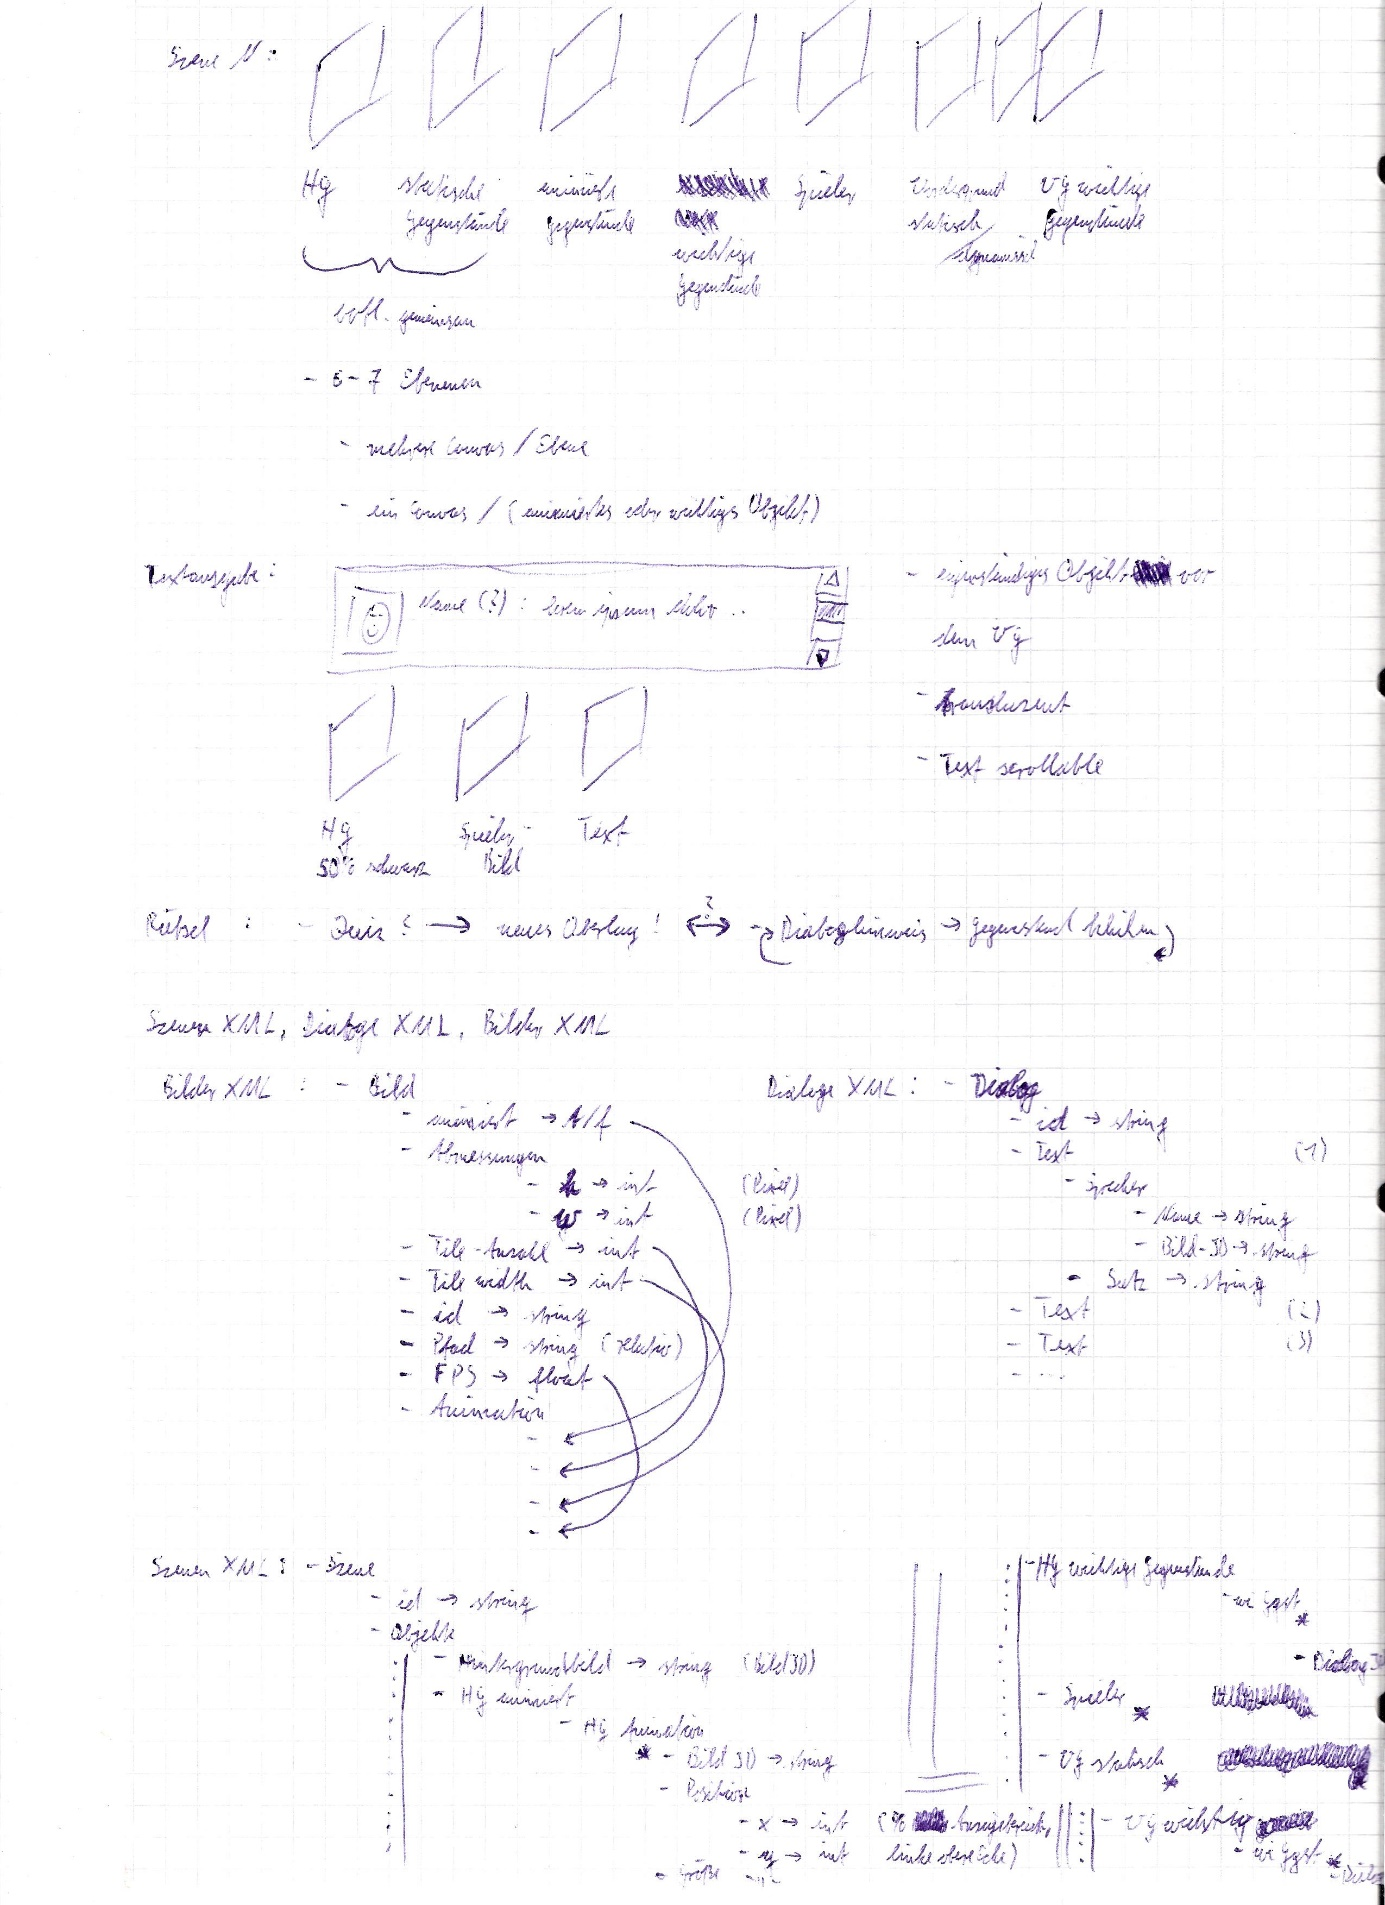 Szene N:
Hg statische animierte Spieler Vordergrund Vg wichtige
Gegenstände Gegenstände statisch Gegenstände
wichtige dynamisch
Gegenstände
evtl. gemeinsam
- 6-7 Ebenen
- mehrere Canvas / Ebene
- ein Canvas / (animiertes oder wichtiges Objekt)
Textausgabe:
Name (?): lorem ipsum
- eigenständiges Objekt vor
dem Vg
- transluzent
- Text scrollable
Hg Spieler- Text
50% schwarz Bild
Rätsel : - Quiz? → neues Overlay! ↔ ? - (Dialoghinweis → Gegenstand klicken)
Szenen XML, Dialoge XML, Bilder XML
Bilder XML : - Bild
- animiert → t/f
- Abmessungen
- h → int (Pixel)
- w → int (Pixel)
- Tile-Anzahl → int
- Tile width → int
- id → string
- Pfad → string (relativ)
- FPS → float
- Animation
-
-
-
-
Dialoge XML : - Dialog
- id → string
- Text (1)
- Sprecher
- Name → string
- Bild-ID → string
- Satz → string
- Text (2)
- Text (3)
- ...
Szenen XML : - Szene
- id → string
- Objekte
- Hintergrundbild → string (Bild ID)
- Hg animiert
- Hg Animation
* - Bild ID → string
- Position
- x → int (%
- y → int linke obere Ecke)
- Größe -"-
- Hg wichtige Gegenstände
- wi Ggst *
- Dialog
- Spieler *
- Vg statisch *
- Vg wichtig
- wi Ggst *